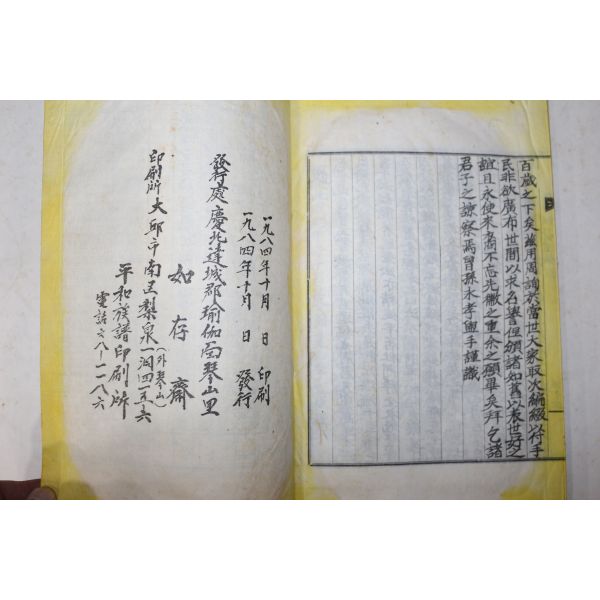 百歲之下矣玆用周詢於當世大家取次編綴以付手
民非欲廣布世間以求名譽但願諸如舊以表世好之
誼且永使來裔不忘先徽之重余之願畢矣拜乞諸
君子之諒察焉曾孫永孝盥手謹識
一九八四年十月 日 印刷
一九八四年十月 日 發行
發行處 慶北達城郡瑜伽面琴山里
如存齋
印刷所 大邱市南區梨泉一洞四一五之六
(外琴山)
平和族譜印刷所
電話 六八-一一八六